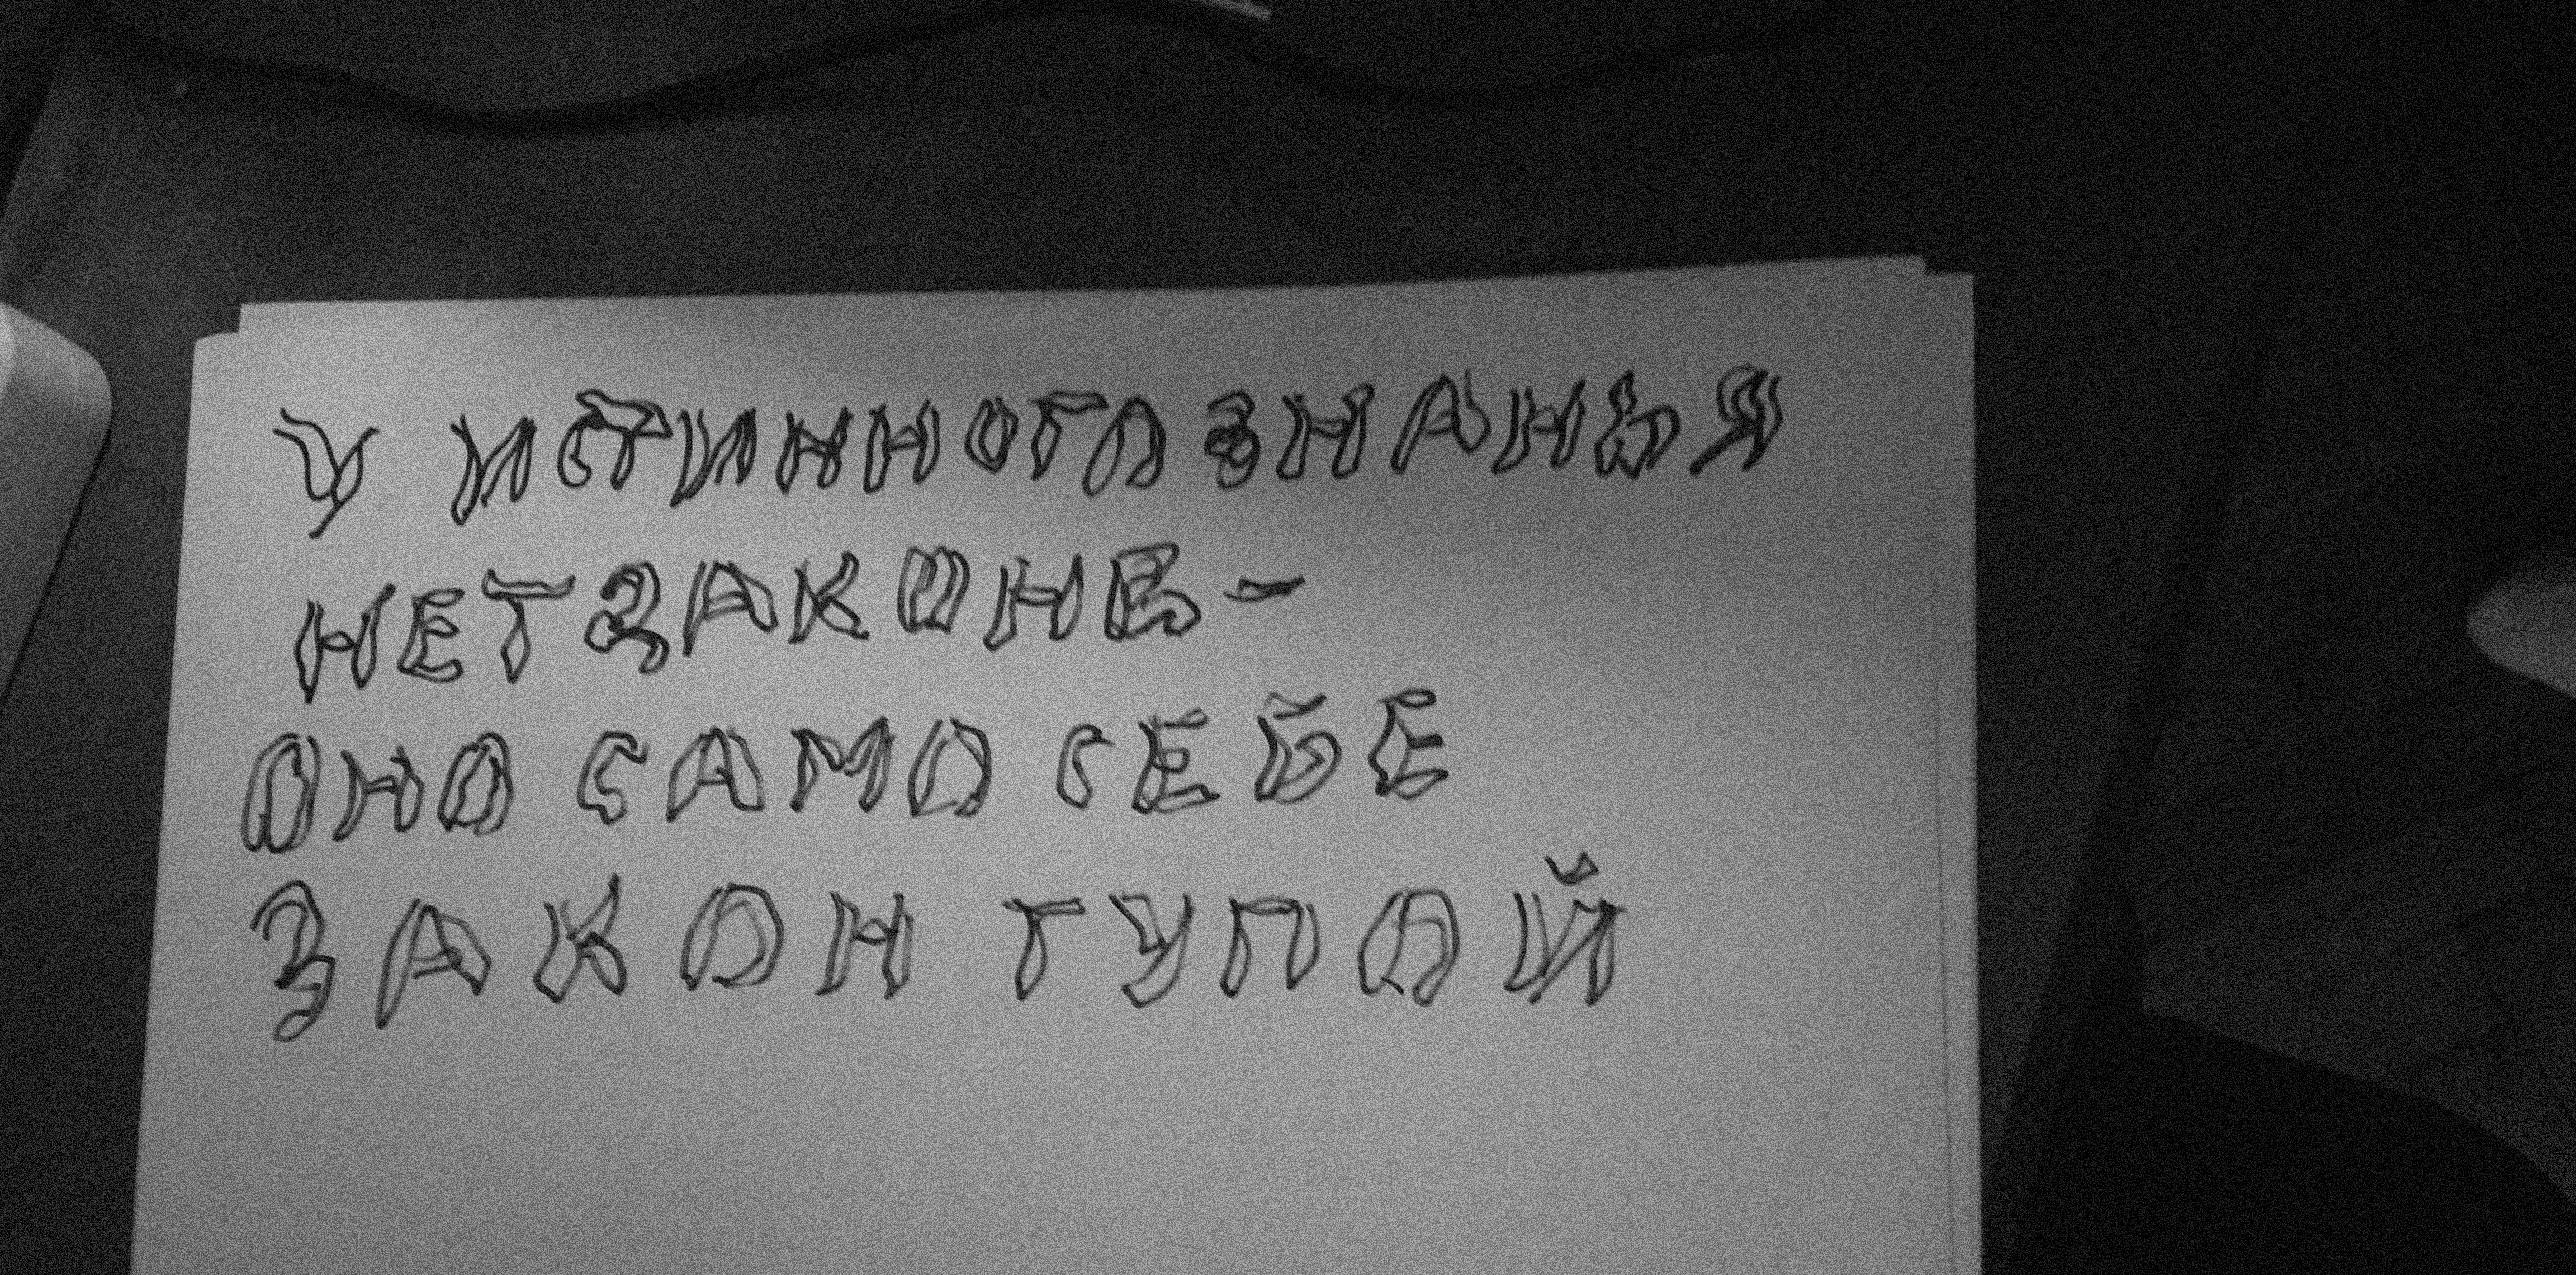 У ИСТИННОГО ЗНАНЬЯ
НЕТ ЗАКОНЕ-
ОНО САМО СЕБЕ
ЗАКОН ТУПОЙ